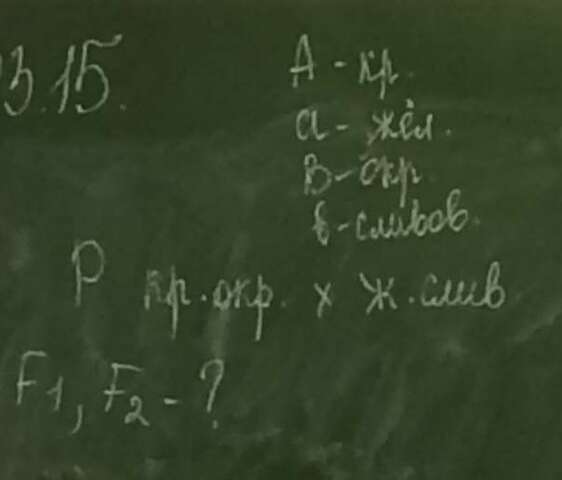 3.15.
A - кр.
а - жёл.
В - окр.
в - сливов.
Р кр. окр. х ж. слив
F1, F2 - ?